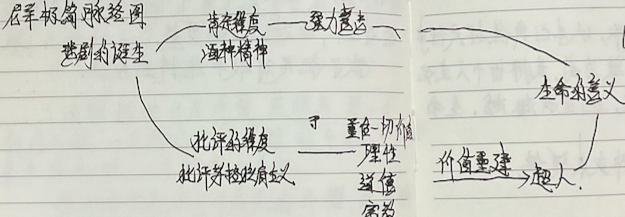 尼采极简脉络图
悲剧的诞生
肯定维度
酒神精神
强力意志
生命的意义
批评的维度
批评苏格拉底主义
重估一切价值
理性
道德
宗教
价值重建
超人